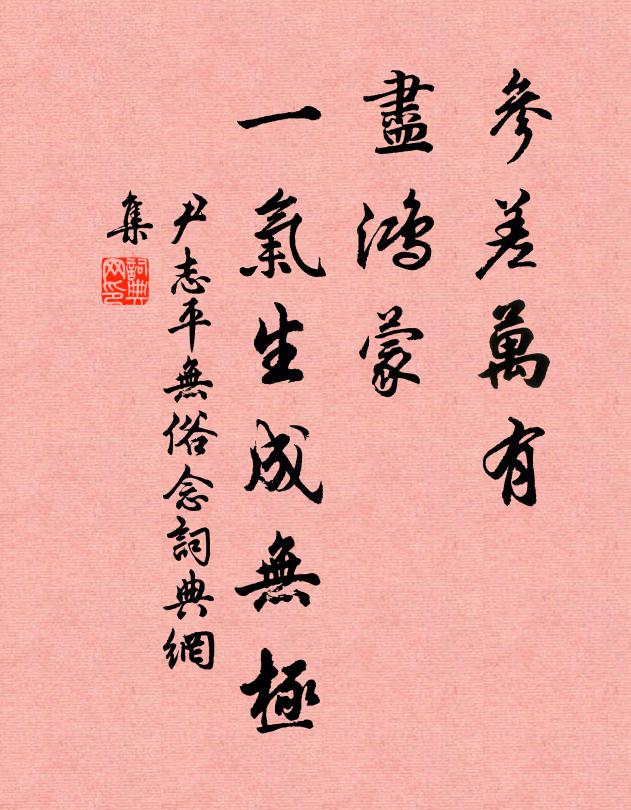 參差萬有
盡鴻蒙
一氣生成無極
尹志平無俗念詞典網
集
詞典
网印